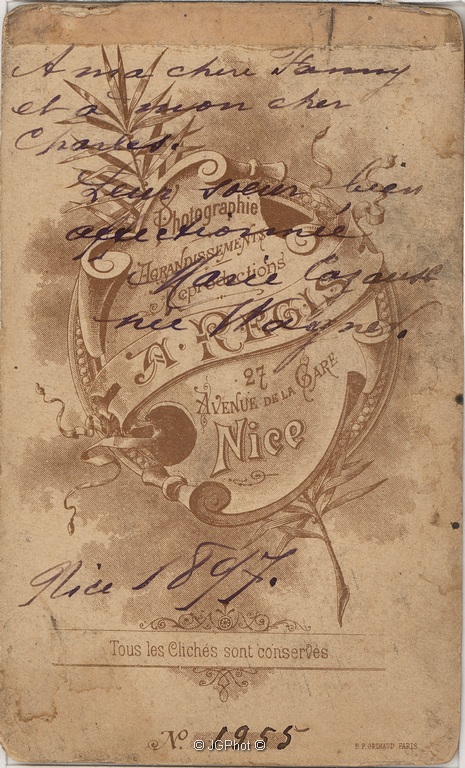 A ma chère Fanny
et à mon cher
Charles.
Leur soeur bien
affectionnée
Marie
née
Photographie
AGRANDISSEMENTS
& Reproductions
A. REGIS
27
AVENUE DE LA GARE
Nice
Nice 1897.
Tous les Clichés sont conservés
No 1955
© JGPhot ©
B. P. GRIMAUD PARIS